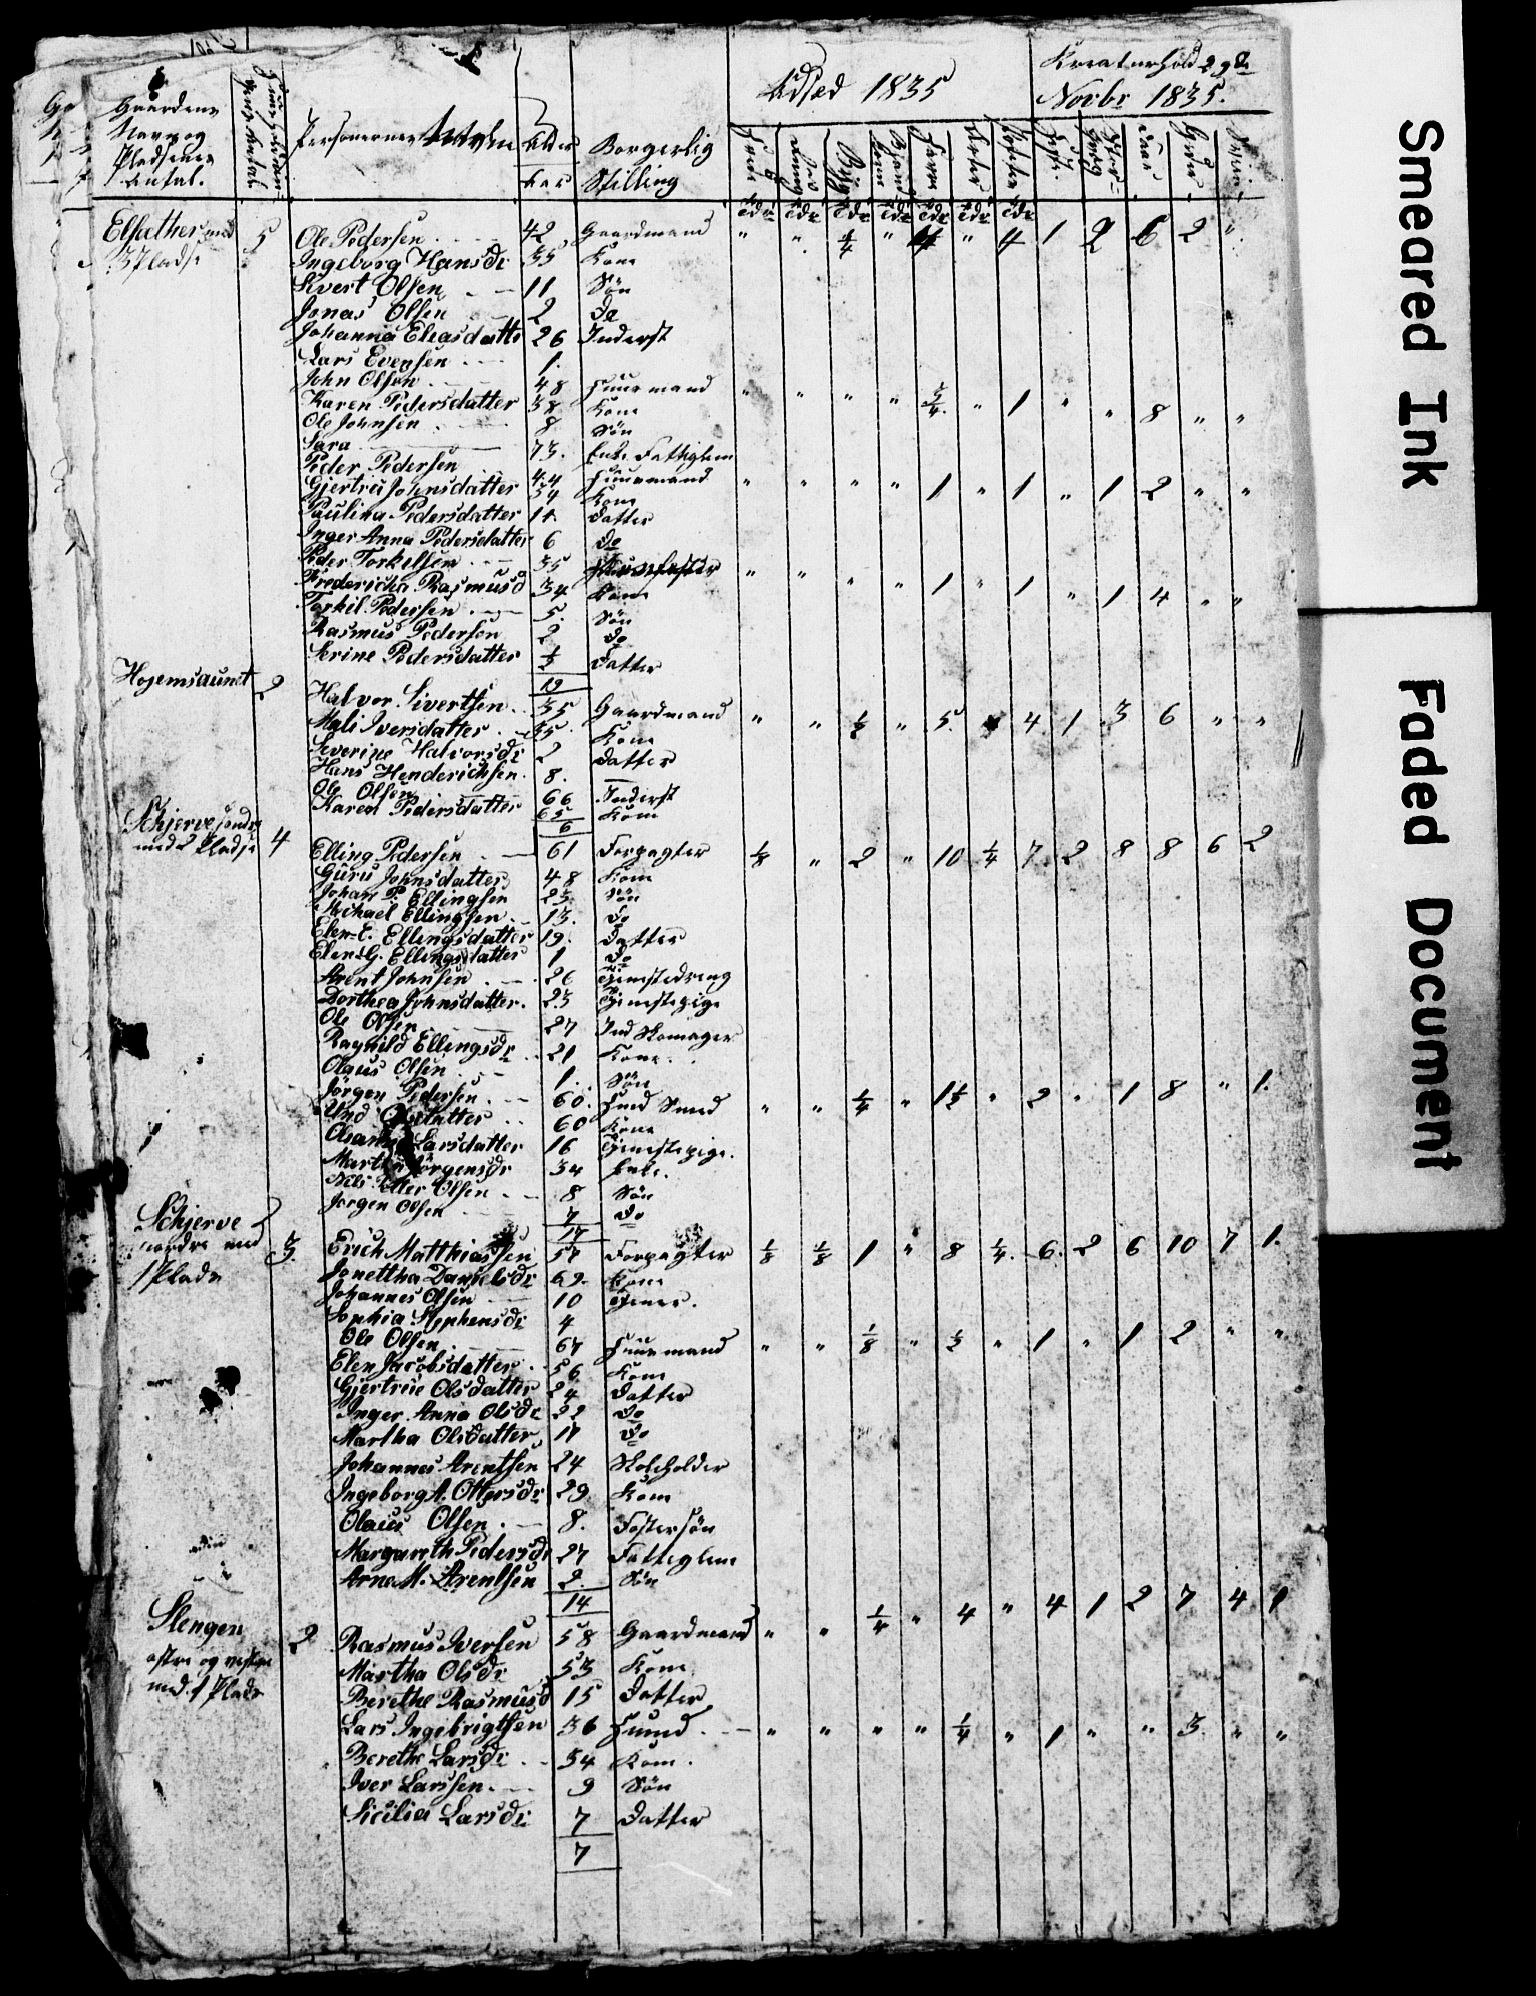 Udsæd 1835
Kreaturhold
Novbr 1835.
Gaardens Navn og Pladsenes Antal.
Personernes Navn
Alder Aar
Borgerlig Stilling
Byg
Elsather med 3 Pladse 5 Ole Pedersen 42 Gaardmand " " 1/4 " 4 " 4 1 2 6 2 "
Ingeborg Hansdr 35 Kone
Sivert Olsen 11 Søn
Jonas Olsen 2 Do
Johanna Eliasdatter 26 Inderst
Lars Evensen 1.
John Olsen 48 Huusmand " " " " 3/4 " 1 " " 8 " "
Karen Pedersdatter 38 Kone
Ole Johnsen 8 Søn
Sara 73. Enke Fattiglem
Peder Pedersen 44 Huusmand " " " " 1 " 1 " 1 2 " "
Gjertru Johnsdatter 34 Kone
Paulina Pedersdatter 11 Datter
Inger Anna Pedersdatter 6 Do
Peder Torkelsen 35 " " " " 1 " 1 " 1 4 " "
Fredericha Rasmusd 34 Kone
Torkil Pedersen 5. Søn
Rasmus Pedersen 2 Do
Serine Pedersdatter 1/2 Datter
19
Hojemsaunet 2 Halvor Sivertsen 35 Gaardmand " " 1/2 " 5. " 4 1 3 6 " "
Mali Iversdatter 35 Kone
Severine Halvorsdr 2 Datter
Hans Henderichsen 8.
Ole Olsen 66 Inderst
Karen Pedersdatter 65 Kone
6
Schjerve søndre med 2 Pladse 4 Elling Pedersen 61 Forpagter 1/8 " 2 " 10 1/4 7 2 8 8 6 2
Guru Johnsdatter 48 Kone
Johan P. Ellingsen 23 Søn
Michael Ellingsen 13. Do
Elen E. Ellingsdatter 19. Datter
Elen G. Ellingsdatter 1 Do
Arent Johnsen 26 Tjenestedreng
Dorthea Johnsdatter 23 Tjenestepige
Ole Olsen 27 Ind Skomager
Ragnild Ellingsdr 21 Kone
Olaus Olsen 1. Søn
Jörgen Pedersen 60. " " 1/4 " 1 1/2 " 2 " 1 8 " 1.
60 Kone
Larsdatter 16 Tjenestepige.
Martha Jörgensdr 34 Enke.
Nils Petter Olsen 8 Søn
Jørgen Olsen 7 Do
17
Schjerve nordre med 1 Plads 3. Erich Matthiassen 57 Forpagter 1/8 1/8 1 " 8 1/4. 6. 2 6 10 7 1.
Jonettha Danielsdr 69. Kone
Johannes Olsen 10 Tjener.
Sophia Stephensdr 4
Ole Olsen 67 Huusmand " " 1/8 " 1/2 " 1 " 1 2 " "
Elen Jacobsdatter 56 Kone
Gjertrue Olsdatter 24 Datter
Inger Anna Olsdr 22 Do
Martha Olsdatter 17 Do
Johannes Arentsen 24 Skoleholder
Ingeborg A. Ottersdr 29 Kone
Olaus Olsen 8. Fostersøn
Margareth Pedersdr 27 Fattiglem
Arne M. Arentsen 2. Søn
14
Slengen østre og vestre med 1 Plads 2 Rasmus Iversen 58 Gaardmand " " 1/4 " 4 " 4 1 2 7 4 1
Martha Olsdr 53 Kone
Berethe Rasmusd 15 Datter
Lars Ingebrigtsen 36 Huusmd. " " " " 1/4 " 1 " " 3. " "
Berethe Larsdr 34 Kone.
Iver Larssen 9 Søn
Sicilia Larsdr 7 Datter
7
Smeared Ink
Faded Document